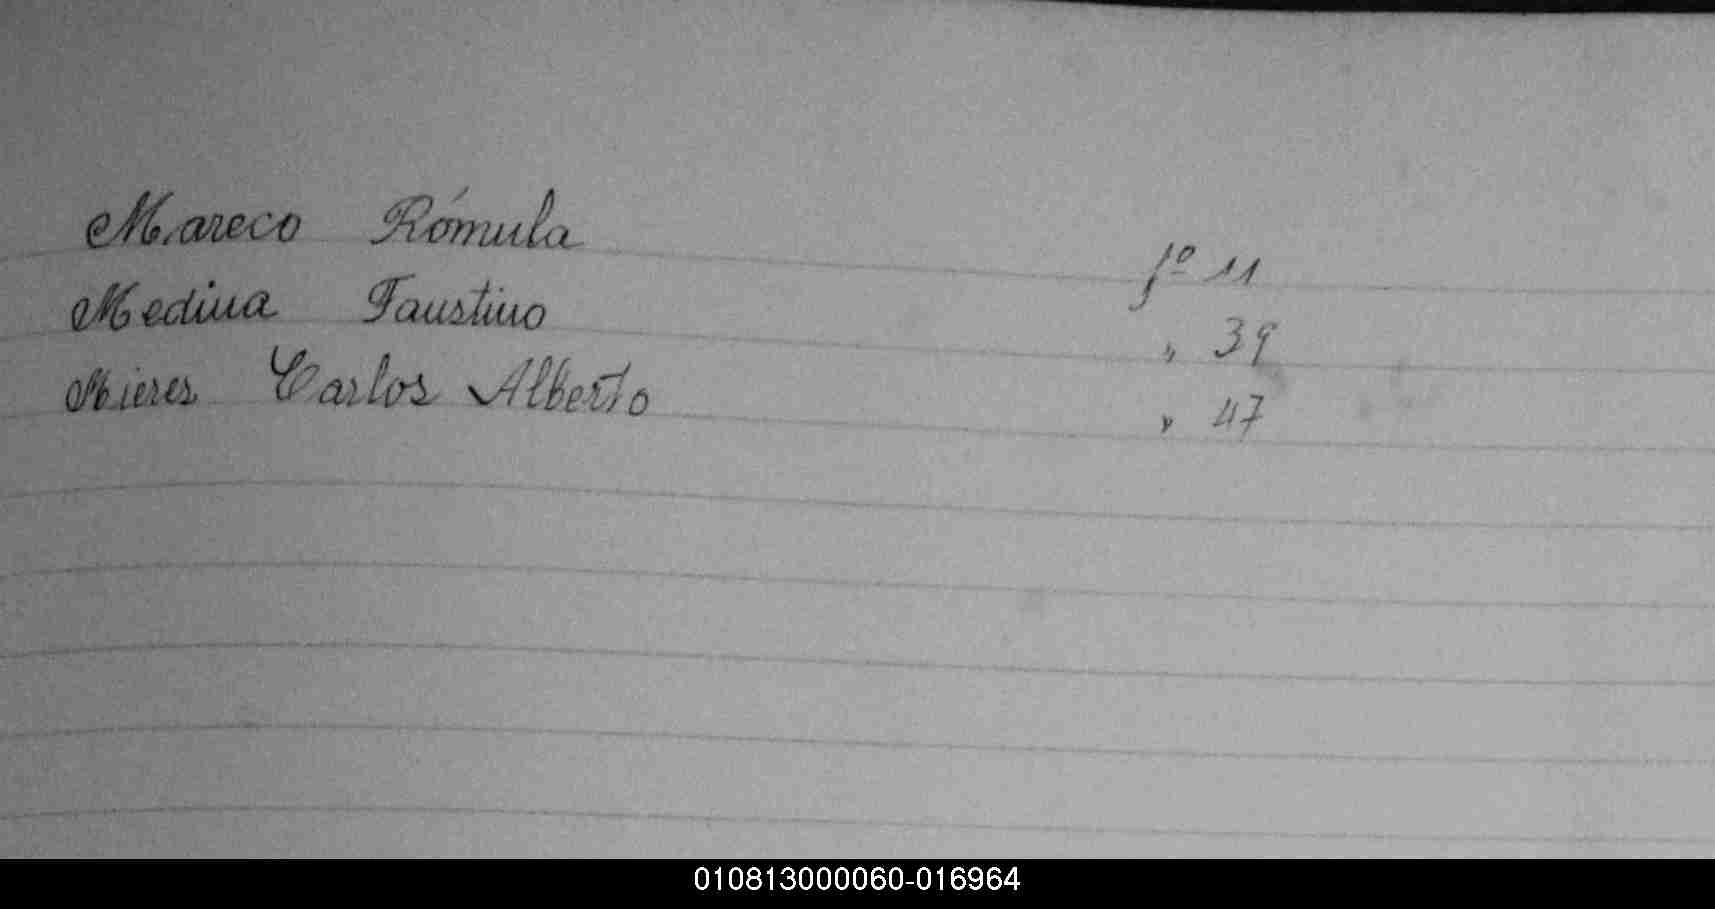 Mareco Rómula fº 11
Medina Faustino " 39
Mieres Carlos Alberto " 47
010813000060-016964